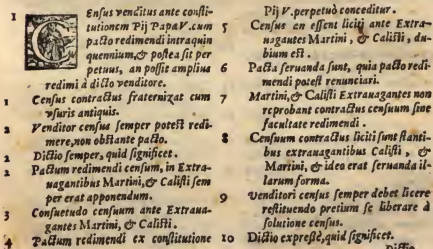 1 CEnsus venditus ante consti-
tutionem Pij Papæ V. cum
pacto redimendi intra quin
quennium, & postea sit per
petuus, an possit amplius
redimi à dicto venditore.
1 Census contractus fraternizat cum
vsuris antiquis.
2 Venditor census semper potest redi-
mere, non obstante pacto.
2 Dictio semper, quid significet.
2 Pactum redimendi censum, in Extra-
uagantibus Martini, & Calisti sem
per erat apponendum.
3 Consuetudo censuum ante Extraua-
gantes Martini, & Calisti.
4 Pactum redimendi ex constitutione
Pij V. perpetuò conceditur.
5 Census an essent liciti ante Extra-
uagantes Martini, & Calisti, du-
bium est.
6 Pacta seruanda sunt, quia pacto redi-
mendi potest renunciari.
7 Martini, & Calisti Extrauagantes non
reprobant contractus censuum sine
facultate redimendi.
8 Censuum contractus liciti sunt stanti-
bus extrauagantibus Calisti, &
Martini, & ideo erat seruanda il-
larum forma.
9 Venditori census semper debet licere
restituendo pretium se liberare à
solutione census.
10 Dictio expressè, quid significet.
Dictio